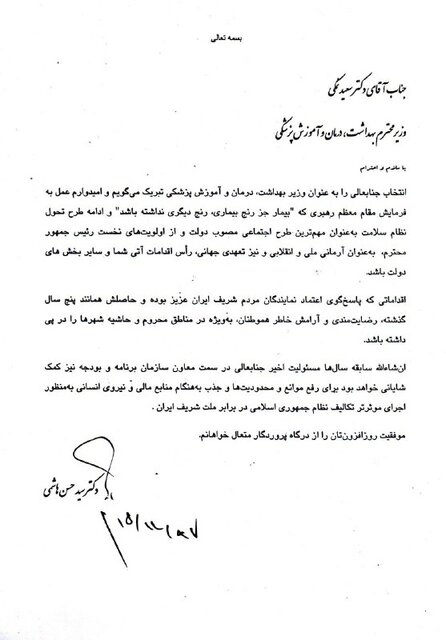 بسمه تعالی
جناب آقای دکتر سعید نمکی
وزیر محترم بهداشت، درمان و آموزش پزشکی
با سلام و احترام
انتخاب جنابعالی را به عنوان وزیر بهداشت، درمان و آموزش پزشکی تبریک می‌گویم و امیدوارم عمل به
فرمایش مقام معظم رهبری که "بیمار جز رنج بیماری، رنج دیگری نداشته باشد" و ادامه طرح تحول
نظام سلامت به‌عنوان مهم‌ترین طرح اجتماعی مصوب دولت و از اولویت‌های نخست رئیس جمهور
محترم، به‌عنوان آرمانی ملی و انقلابی و نیز تعهدی جهانی، رأس اقدامات آتی شما و سایر بخش های
دولت باشد.
اقداماتی که پاسخ‌گوی اعتماد نمایندگان مردم شریف ایران عزیز بوده و حاصلش همانند پنج سال
گذشته، رضایت‌مندی و آرامش خاطر هموطنان، به‌ویژه در مناطق محروم و حاشیه شهرها را در پی
داشته باشد.
ان‌شاءالله سابقه سال‌ها مسئولیت اخیر جنابعالی در سمت معاون سازمان برنامه و بودجه نیز کمک
شایانی خواهد بود برای رفع موانع و محدودیت‌ها و جذب به‌هنگام منابع مالی و نیروی انسانی به‌منظور
اجرای موثرتر تکالیف نظام جمهوری اسلامی در برابر ملت شریف ایران .
موفقیت روزافزون‌تان را از درگاه پروردگار متعال خواهانم.
دکتر سید حسن هاشمی
۱۵/۱۱/۹۷